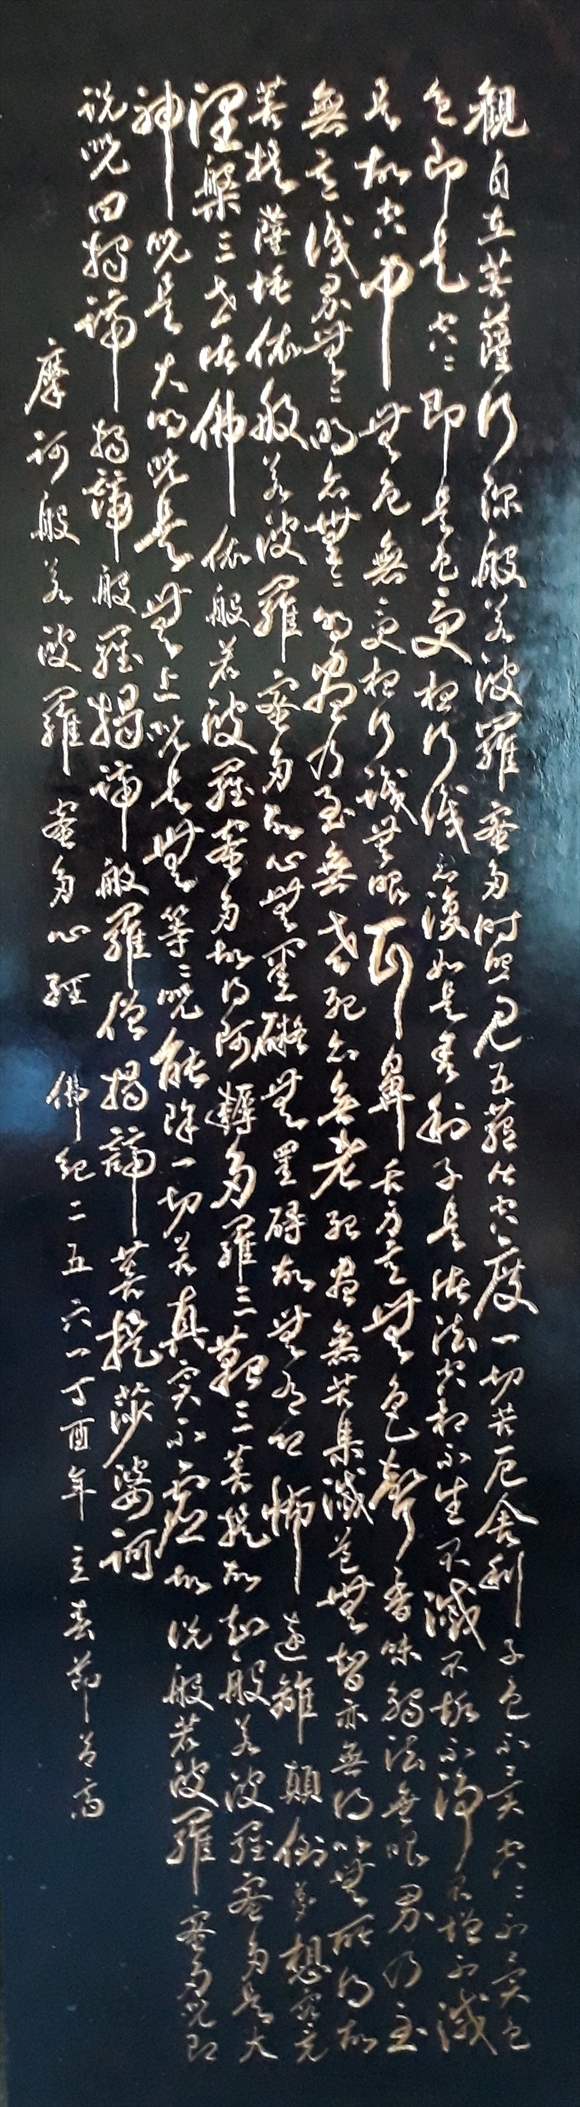 觀自在菩薩行深般若波羅蜜多時照見五蘊皆空度一切苦厄舍利子色不異空〻不異色
色即是空〻即是色受想行識亦復如是舍利子是諸法空相不生不滅不垢不淨不增不減
是故空中無色無受想行識無眼耳鼻舌身意無色聲香味觸法無眼界乃至
無意識界無〻明亦無〻明盡乃至無老死亦無老死盡無苦集滅道無智亦無得以無所得故
菩提薩埵依般若波羅蜜多故心無罣礙無罣礙故無有恐怖遠離顛倒夢想究竟
涅槃三世諸佛依般若波羅蜜多故得阿耨多羅三藐三菩提故知般若波羅蜜多是大
神咒是大明咒是無上咒是無等〻咒能除一切苦真實不虛故說般若波羅蜜多咒即
說咒曰揭諦揭諦般羅揭諦般羅僧揭諦菩提莎婆訶
摩訶般若波羅蜜多心經 佛紀二五六一丁酉年立春節